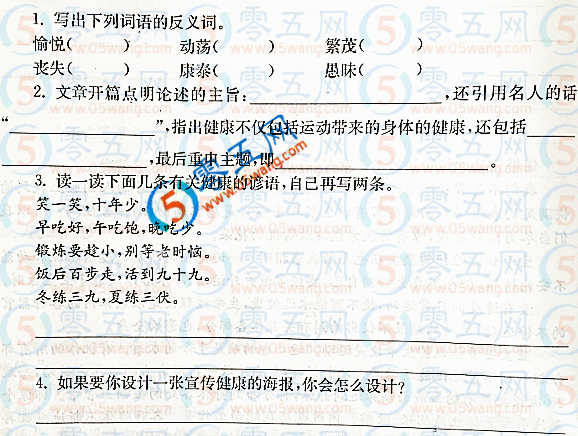 1. 写出下列词语的反义词。
愉悦(　　) 动荡(　　) 繁茂(　　)
丧失(　　) 康泰(　　) 愚昧(　　)
2. 文章开篇点明论述的主旨：____________________,还引用名人的话
“________________”,指出健康不仅包括运动带来的身体的健康,还包括_____
________________,最后重申主题,即________________________。
3. 读一读下面几条有关健康的谚语,自己再写两条。
笑一笑,十年少。
早吃好,午吃饱,晚吃少。
锻炼要趁小,别等老时恼。
饭后百步走,活到九十九。
冬练三九,夏练三伏。
4. 如果要你设计一张宣传健康的海报,你会怎么设计?
零五网
www.05wang.com